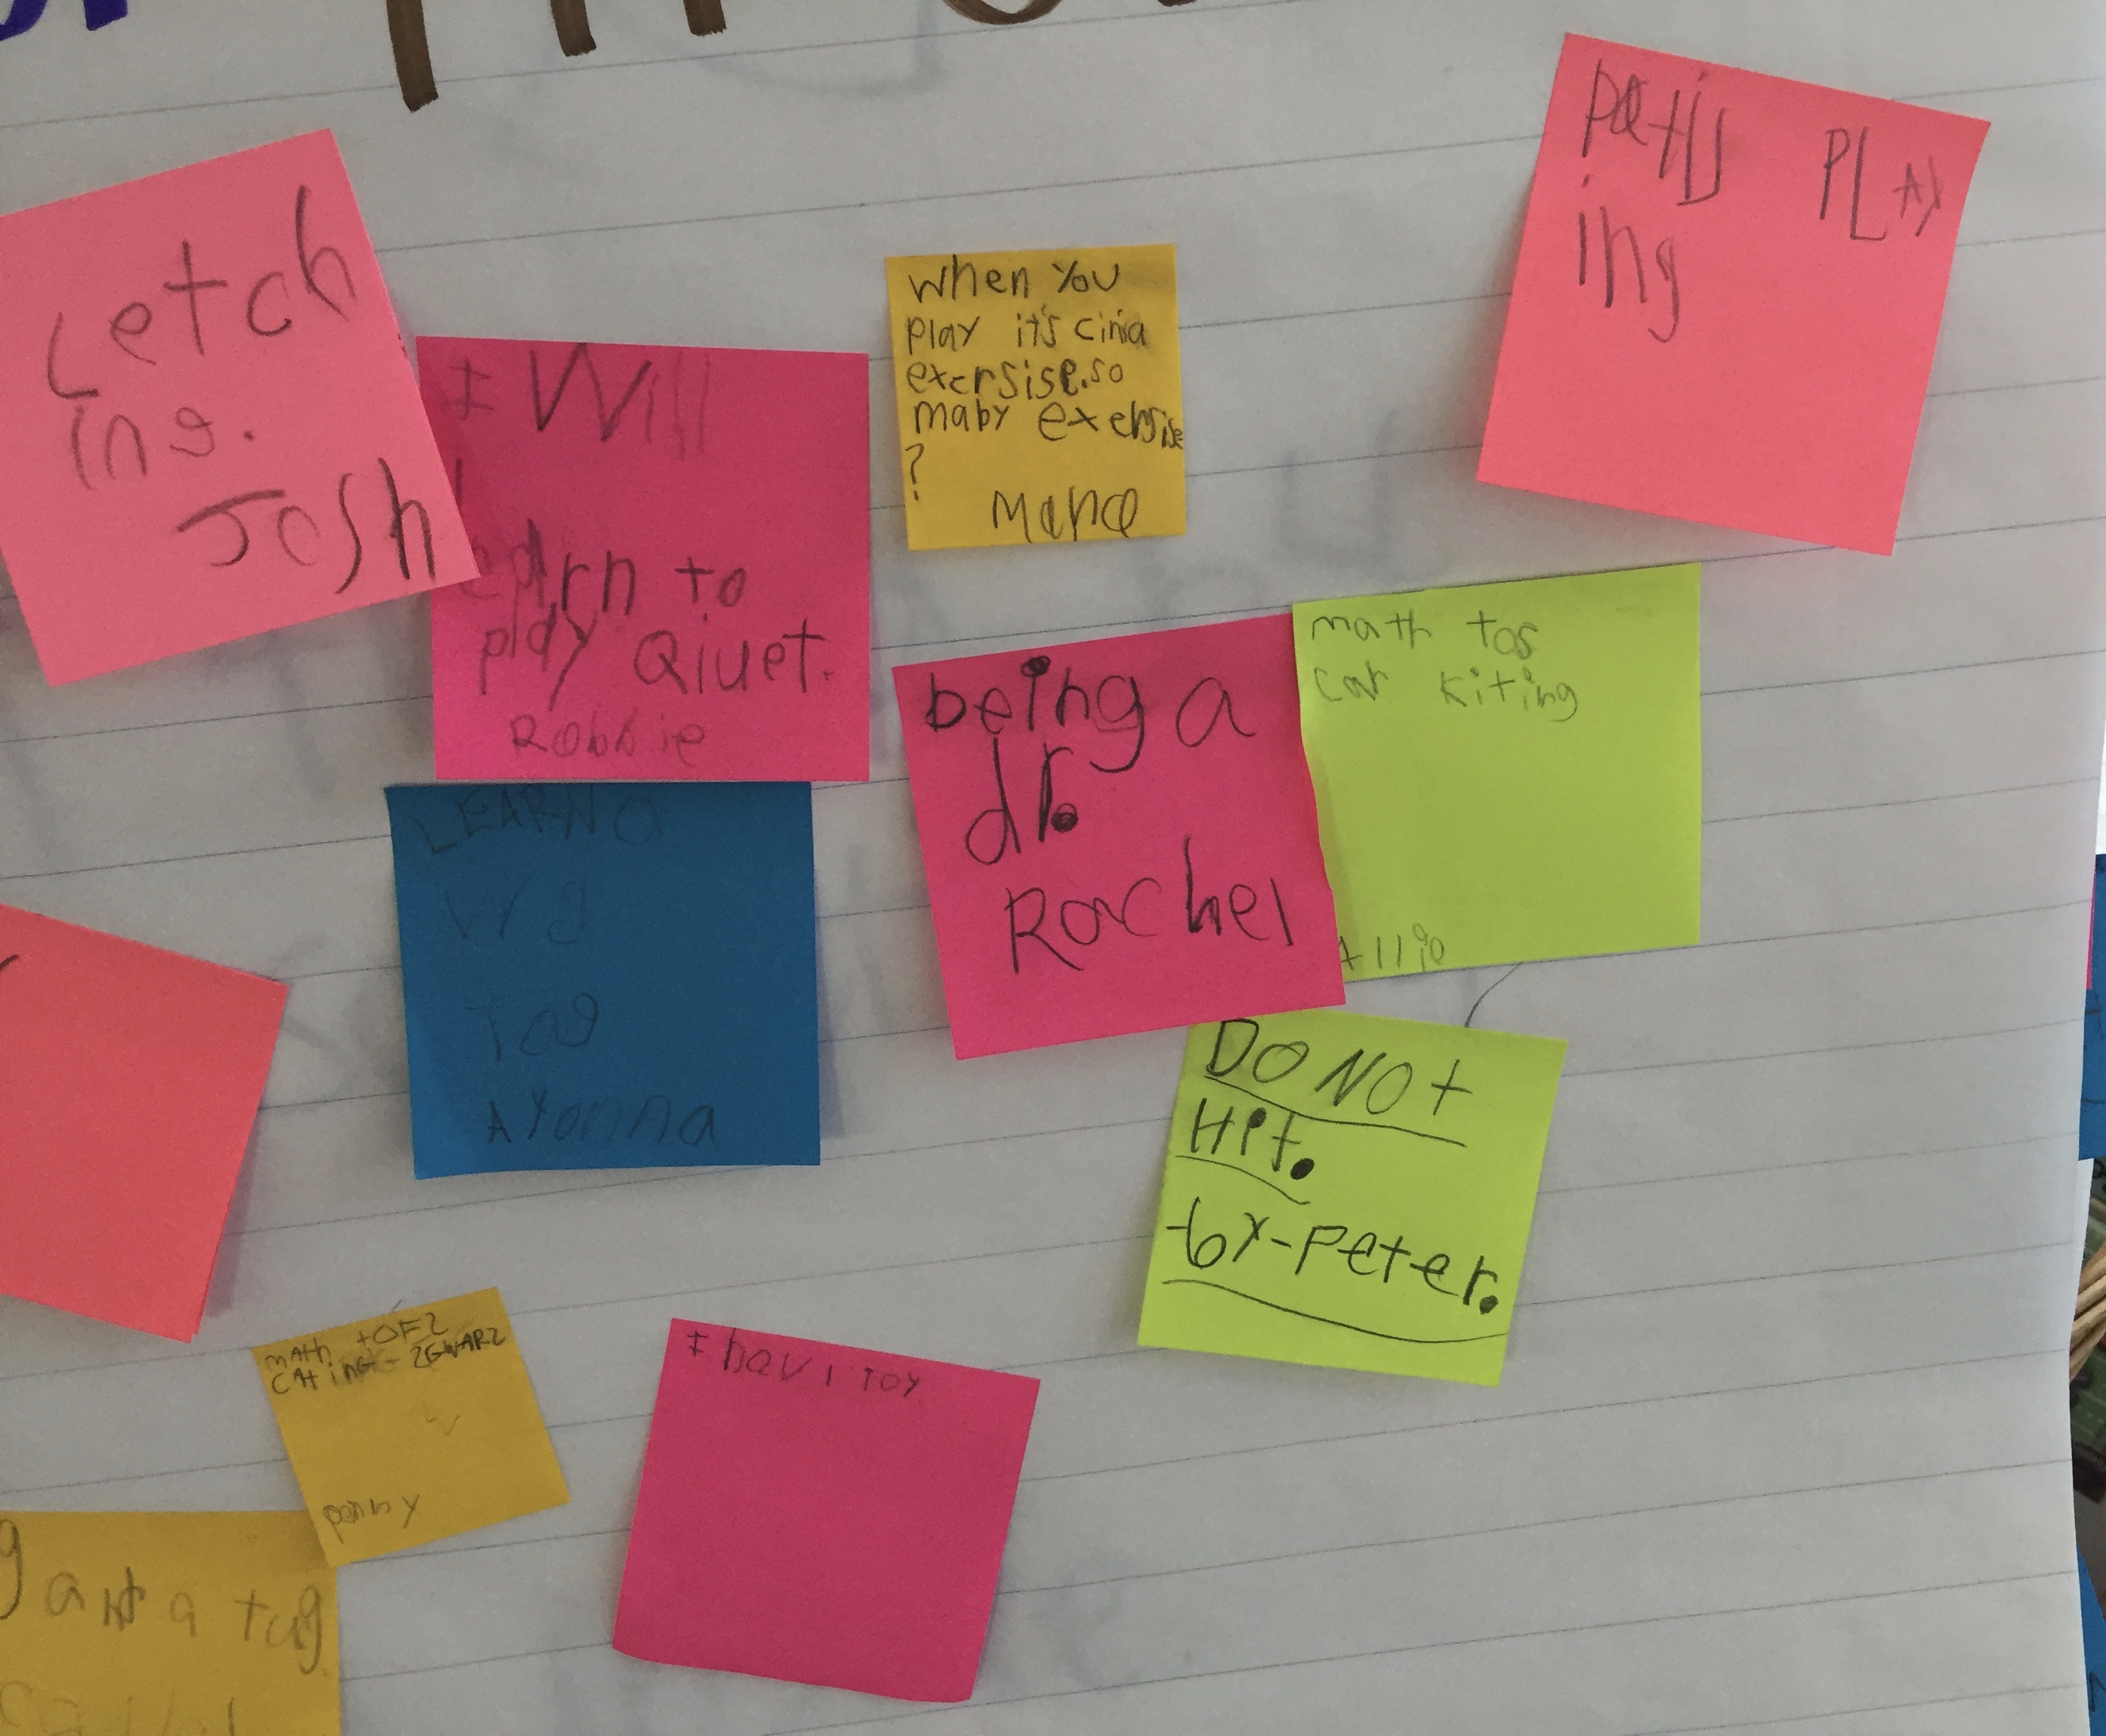 Letch
ing.
Josh
I Will
learn to
play Qiuet.
Robbie
when you
play it's cinia
exersise.so
maby exersise
?
Mana
PLAY
ing
being a
dr.
Rachel
math tos
car kiting
Allie
LEARNG
Tag
AYanna
DO NOt
Hit.
by-Peter.
math
CAtiNG-
penny
I hav i toy
a tug